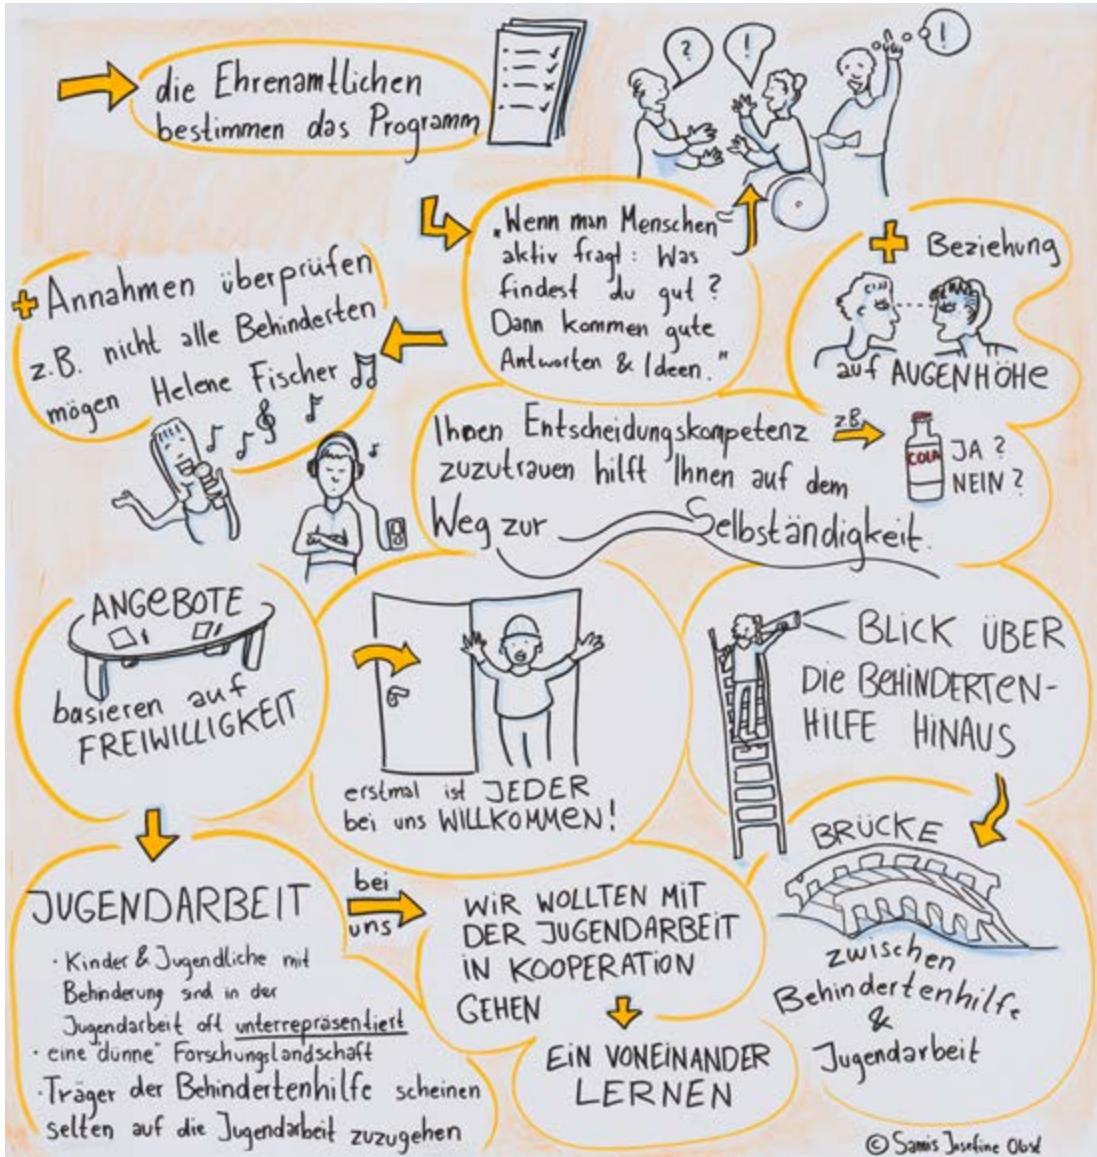 die Ehrenamtlichen
bestimmen das Programm
?
!
!
"Wenn man Menschen
aktiv fragt: Was
findest du gut?
Dann kommen gute
Antworten & Ideen."
+ Beziehung
auf AUGENHÖHE
+ Annahmen überprüfen
z.B. nicht alle Behinderten
mögen Helene Fischer
Ihnen Entscheidungskompetenz
zuzutrauen hilft Ihnen auf dem
Weg zur Selbständigkeit.
z.B.
COLA
JA?
NEIN?
ANGEBOTE
basieren auf
FREIWILLIGKEIT
erstmal ist JEDER
bei uns WILLKOMMEN!
BLICK ÜBER
DIE BEHINDERTEN-
HILFE HINAUS
BRÜCKE
zwischen
Behindertenhilfe
&
Jugendarbeit
JUGENDARBEIT
· Kinder & Jugendliche mit
Behinderung sind in der
Jugendarbeit oft unterrepräsentiert
· eine "dünne" Forschungslandschaft
· Träger der Behindertenhilfe scheinen
selten auf die Jugendarbeit zuzugehen
bei
uns
WIR WOLLTEN MIT
DER JUGENDARBEIT
IN KOOPERATION
GEHEN
EIN VONEINANDER
LERNEN
© Josefine Obst